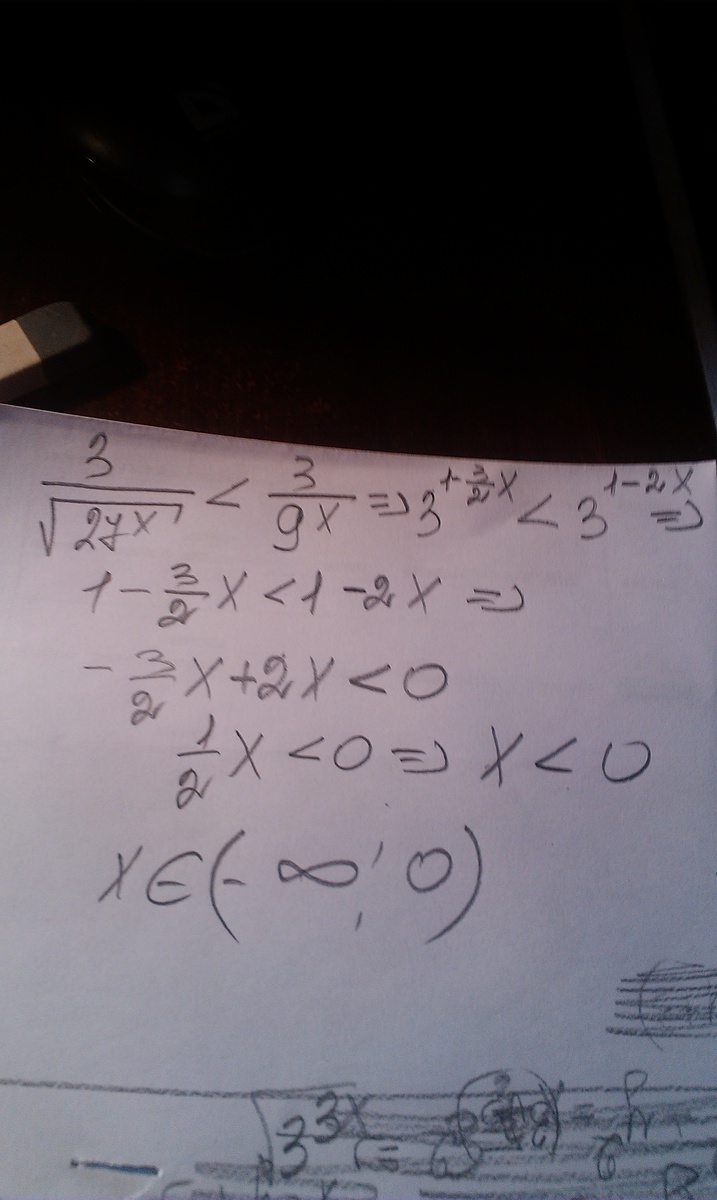 3/√27^x < 3/9^x => 3^(1-3/2x) < 3^(1-2x) =>
1-3/2x<1-2x =>
-3/2x+2x<0
1/2x<0 => x<0
x∈(-∞; 0)
√3^3x =